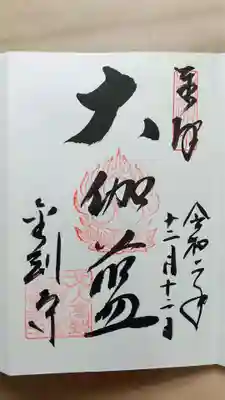 奉拝
令和二年
十二月十二日
大伽藍
金剛寺